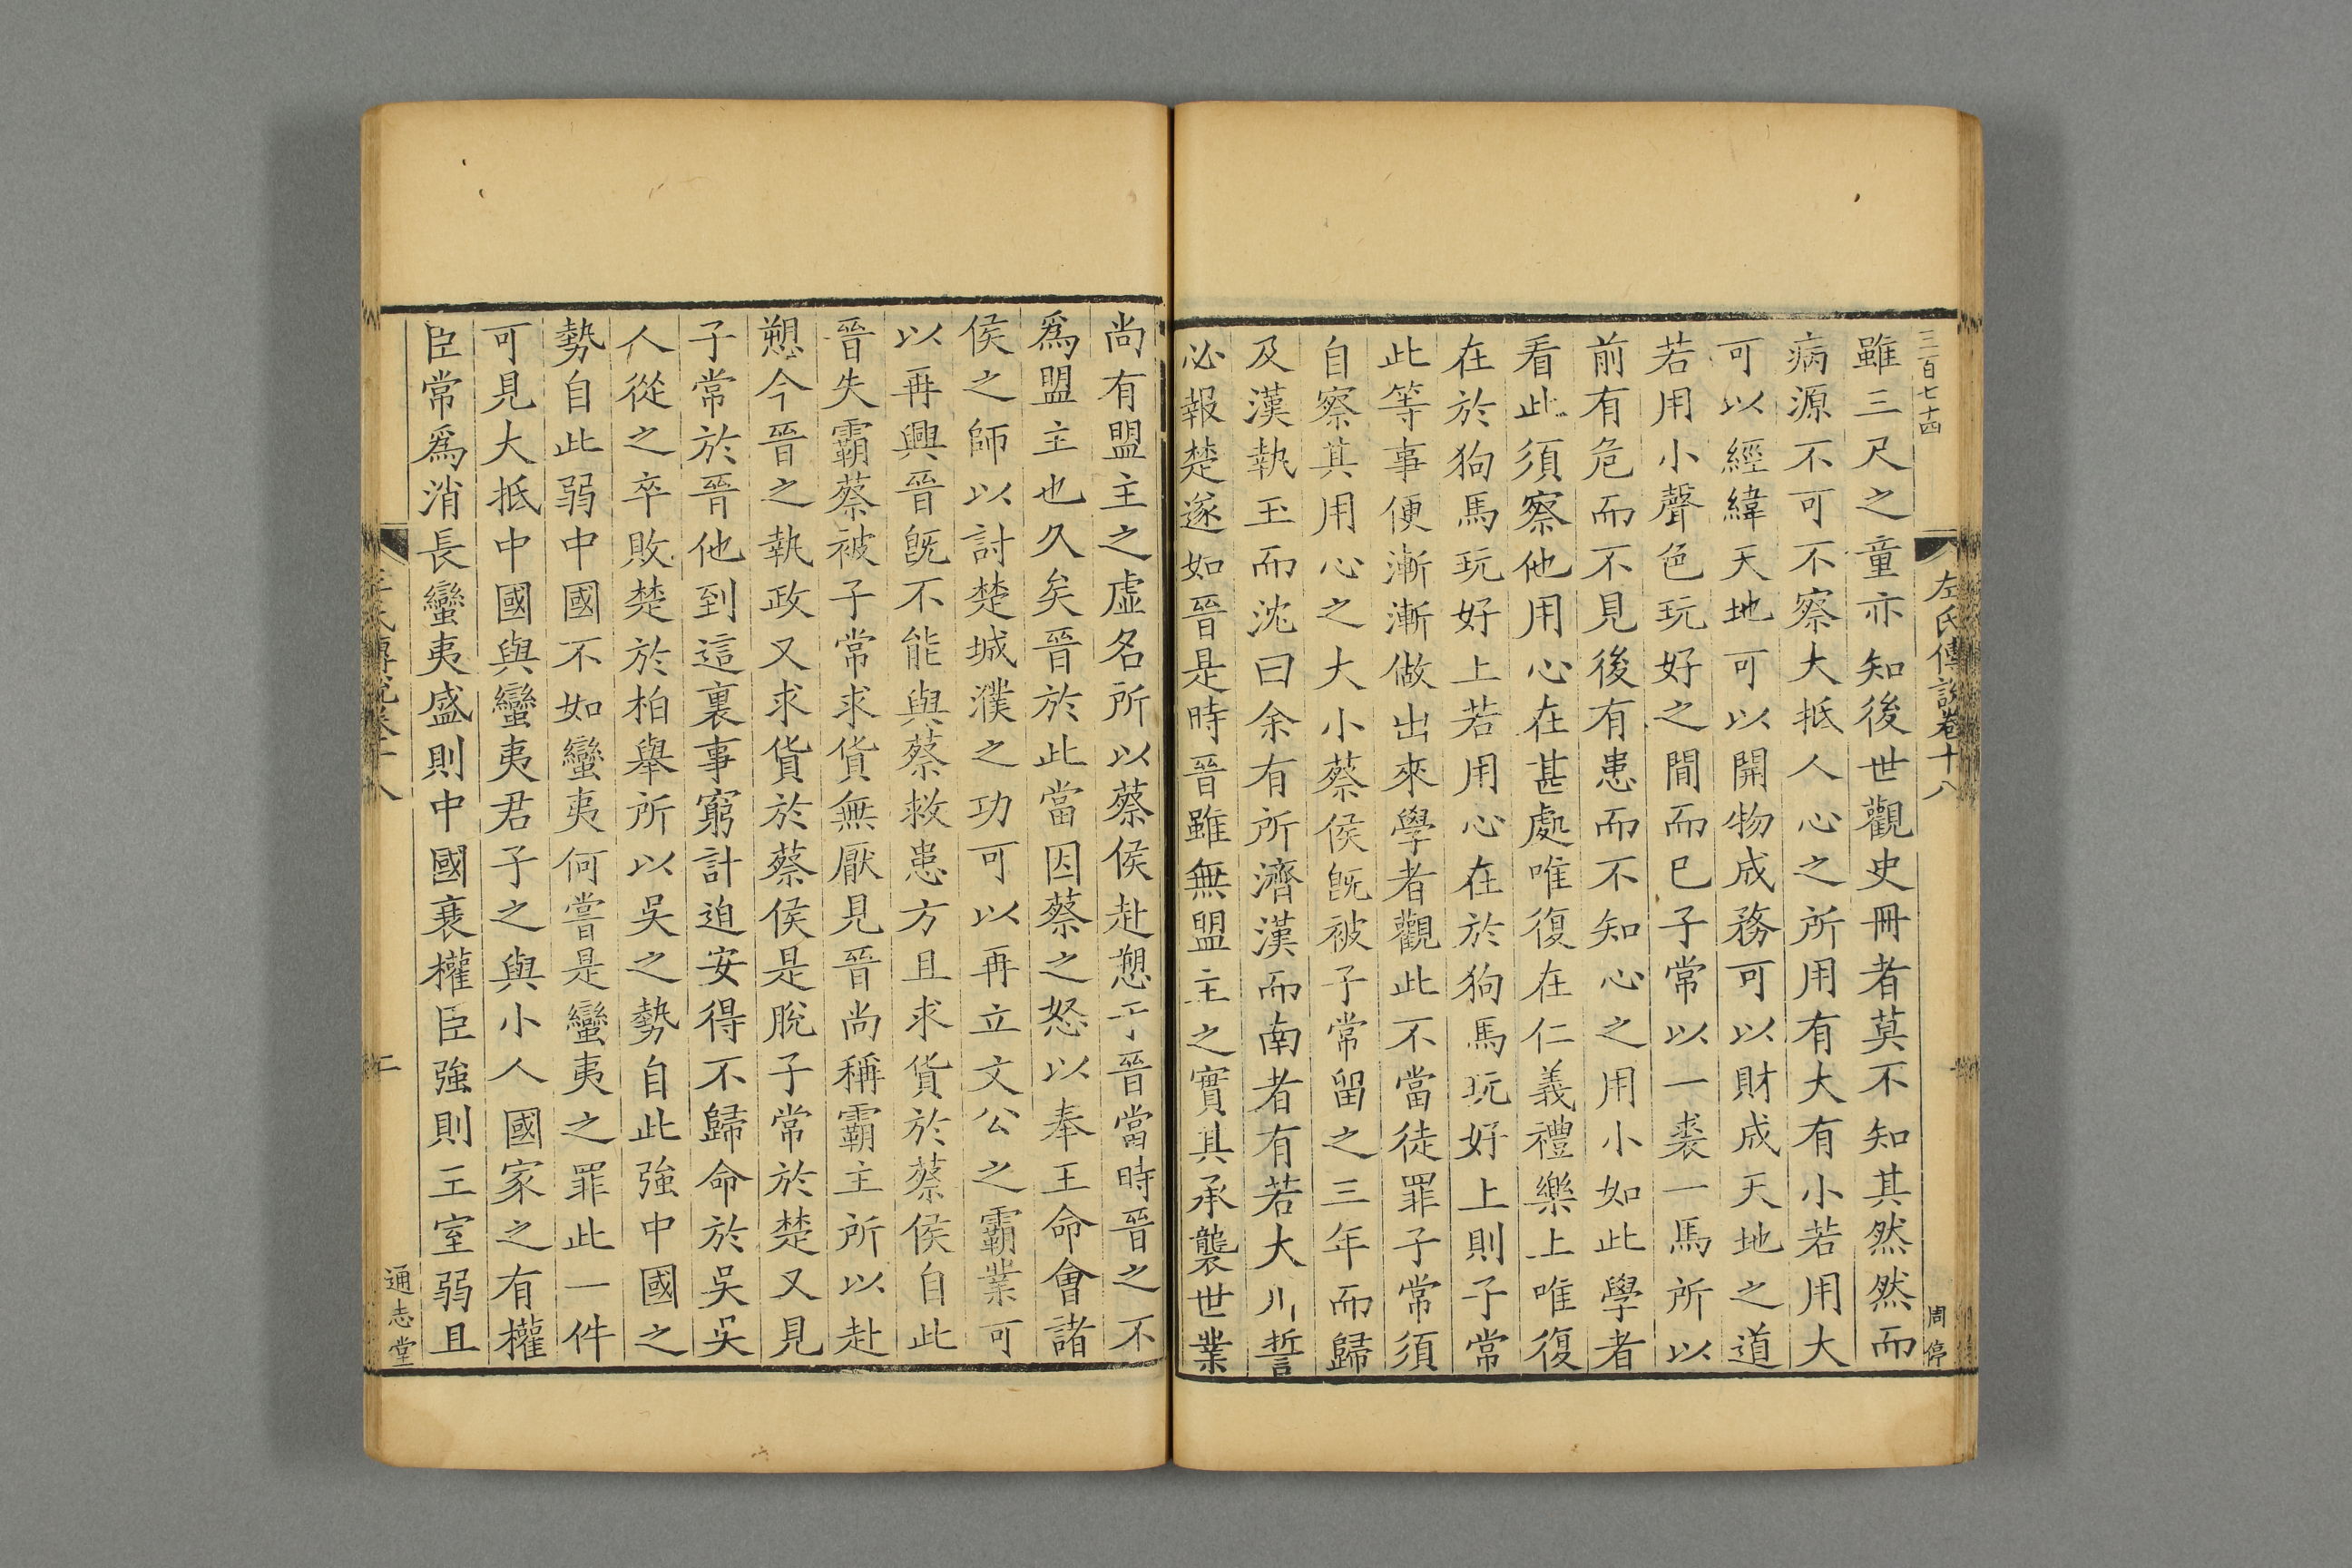 三百七十四
左氏傳說卷十八
周停
雖三尺之童亦知後世觀史冊者莫不知其然然而
病源不可不察大抵人心之所用有大有小若用大
可以經緯天地可以開物成務可以財成天地之道
若用小聲色玩好之間而已子常以一裘一馬所以
前有危而不見後有患而不知心之用小如此學者
看此須察他用心在甚處唯復在仁義禮樂上唯復
在於狗馬玩好上若用心在於狗馬玩好上則子常
此等事便漸漸做出來學者觀此不當徒罪子常須
自察其用心之大小蔡侯旣被子常留之三年而歸
及漢執玉而沈曰余有所濟漢而南者有若大川誓
必報楚遂如晉是時晉雖無盟主之實其承襲世業
尚有盟主之虛名所以蔡侯赴愬于晉當時晉之不
爲盟主也久矣晉於此當因蔡之怒以奉王命會諸
侯之師以討楚城濮之功可以再立文公之霸業可
以再興晉旣不能與蔡救患方且求貨於蔡侯自此
晉失霸蔡被子常求貨無厭見晉尚稱霸主所以赴
愬今晉之執政又求貨於蔡侯是脫子常於楚又見
子常於晉他到這裏事窮計迫安得不歸命於吳吳
人從之卒敗楚於柏舉所以吳之勢自此強中國之
勢自此弱中國不如蠻夷何嘗是蠻夷之罪此一件
可見大抵中國與蠻夷君子之與小人國家之有權
臣常爲消長蠻夷盛則中國衰權臣強則王室弱且
左氏傳說卷十八
二
通志堂